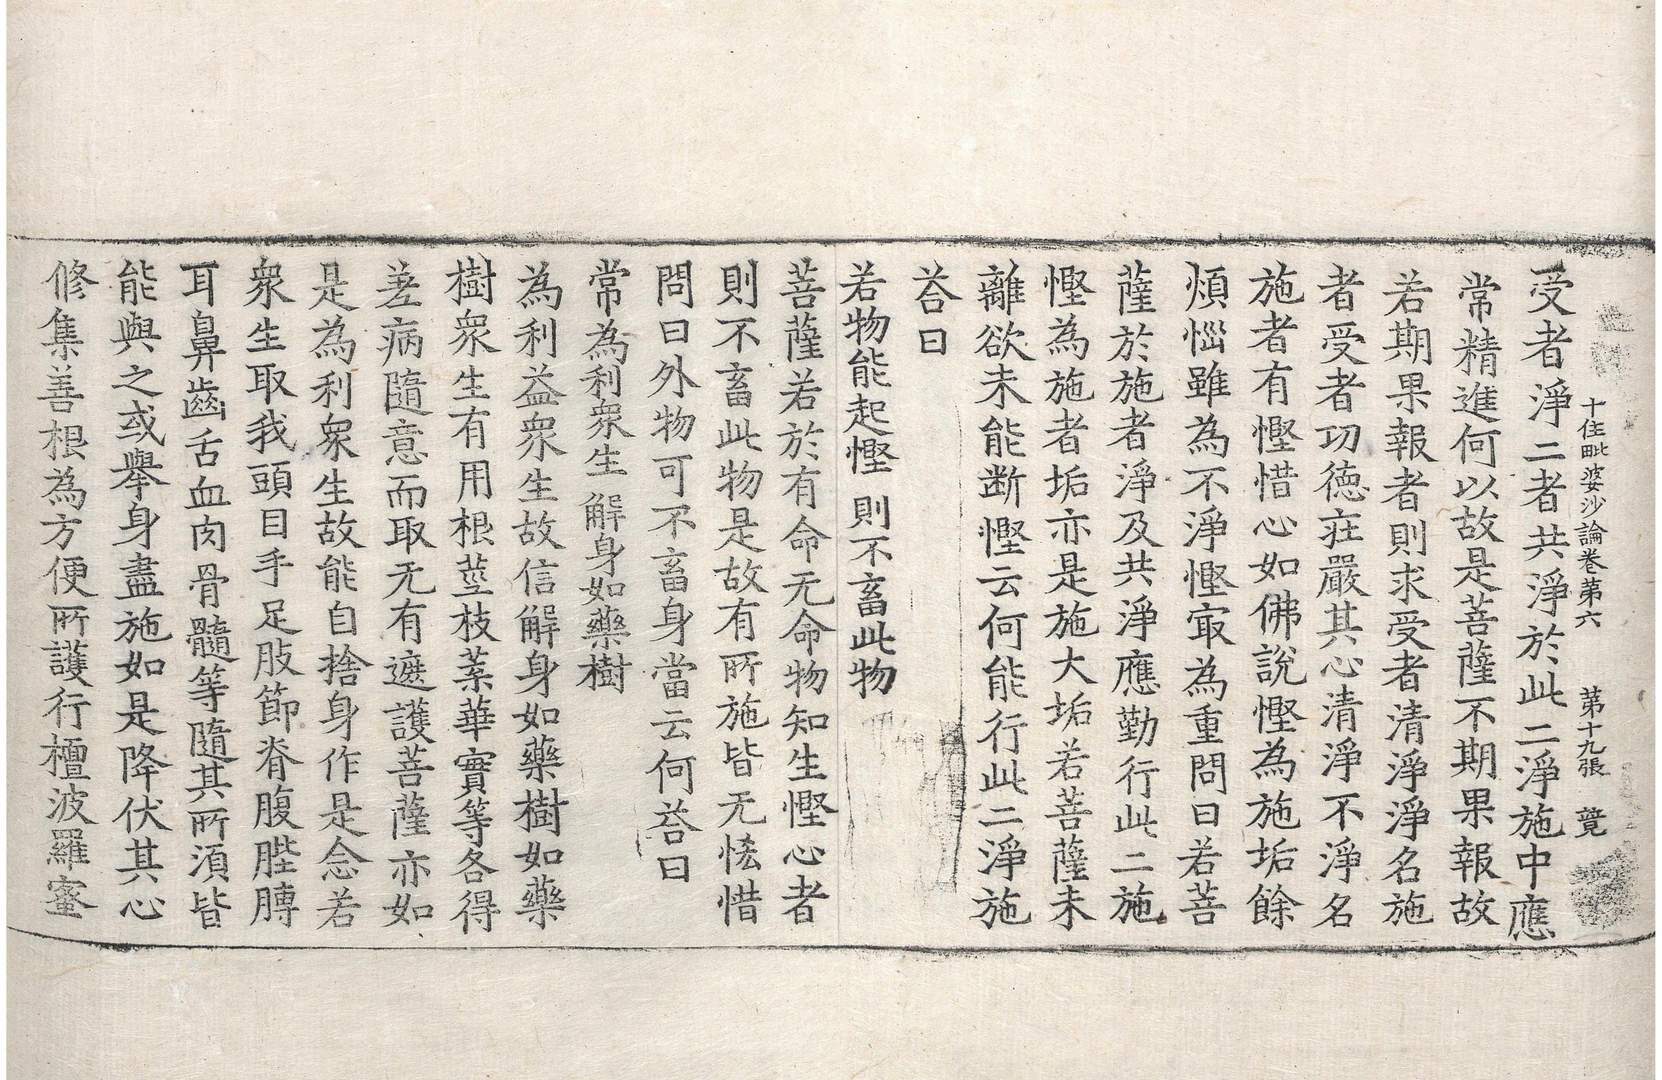 十住毗婆沙論卷第六 第十九張 竟
受者淨二者共淨於此二淨施中應
常精進何以故是菩薩不期果報故
若期果報者則求受者清淨淨名施
者受者功德莊嚴其心清淨不淨名
施者有慳惜心如佛說慳為施垢餘
煩惱雖為不淨慳㝡為重問曰若菩
薩於施者淨及共淨應勤行此二施
慳為施者垢亦是施大垢若菩薩未
離欲未能断慳云何能行此二淨施
荅曰
若物能起慳 則不畜此物
菩薩若於有命无命物知生慳心者
則不畜此物是故有所施皆无悋惜
問曰外物可不畜身當云何荅曰
常為利衆生 解身如藥樹
為利益衆生故信解身如藥樹如藥
樹衆生有用根莖枝葉華實等各得
差病隨意而取无有遮護菩薩亦如
是為利衆生故能自捨身作是念若
衆生取我頭目手足肢節脊腹䏶膞
耳鼻齒舌血肉骨髓等隨其所須皆
能與之或舉身盡施如是降伏其心
修集善根為方便所護行檀波羅蜜